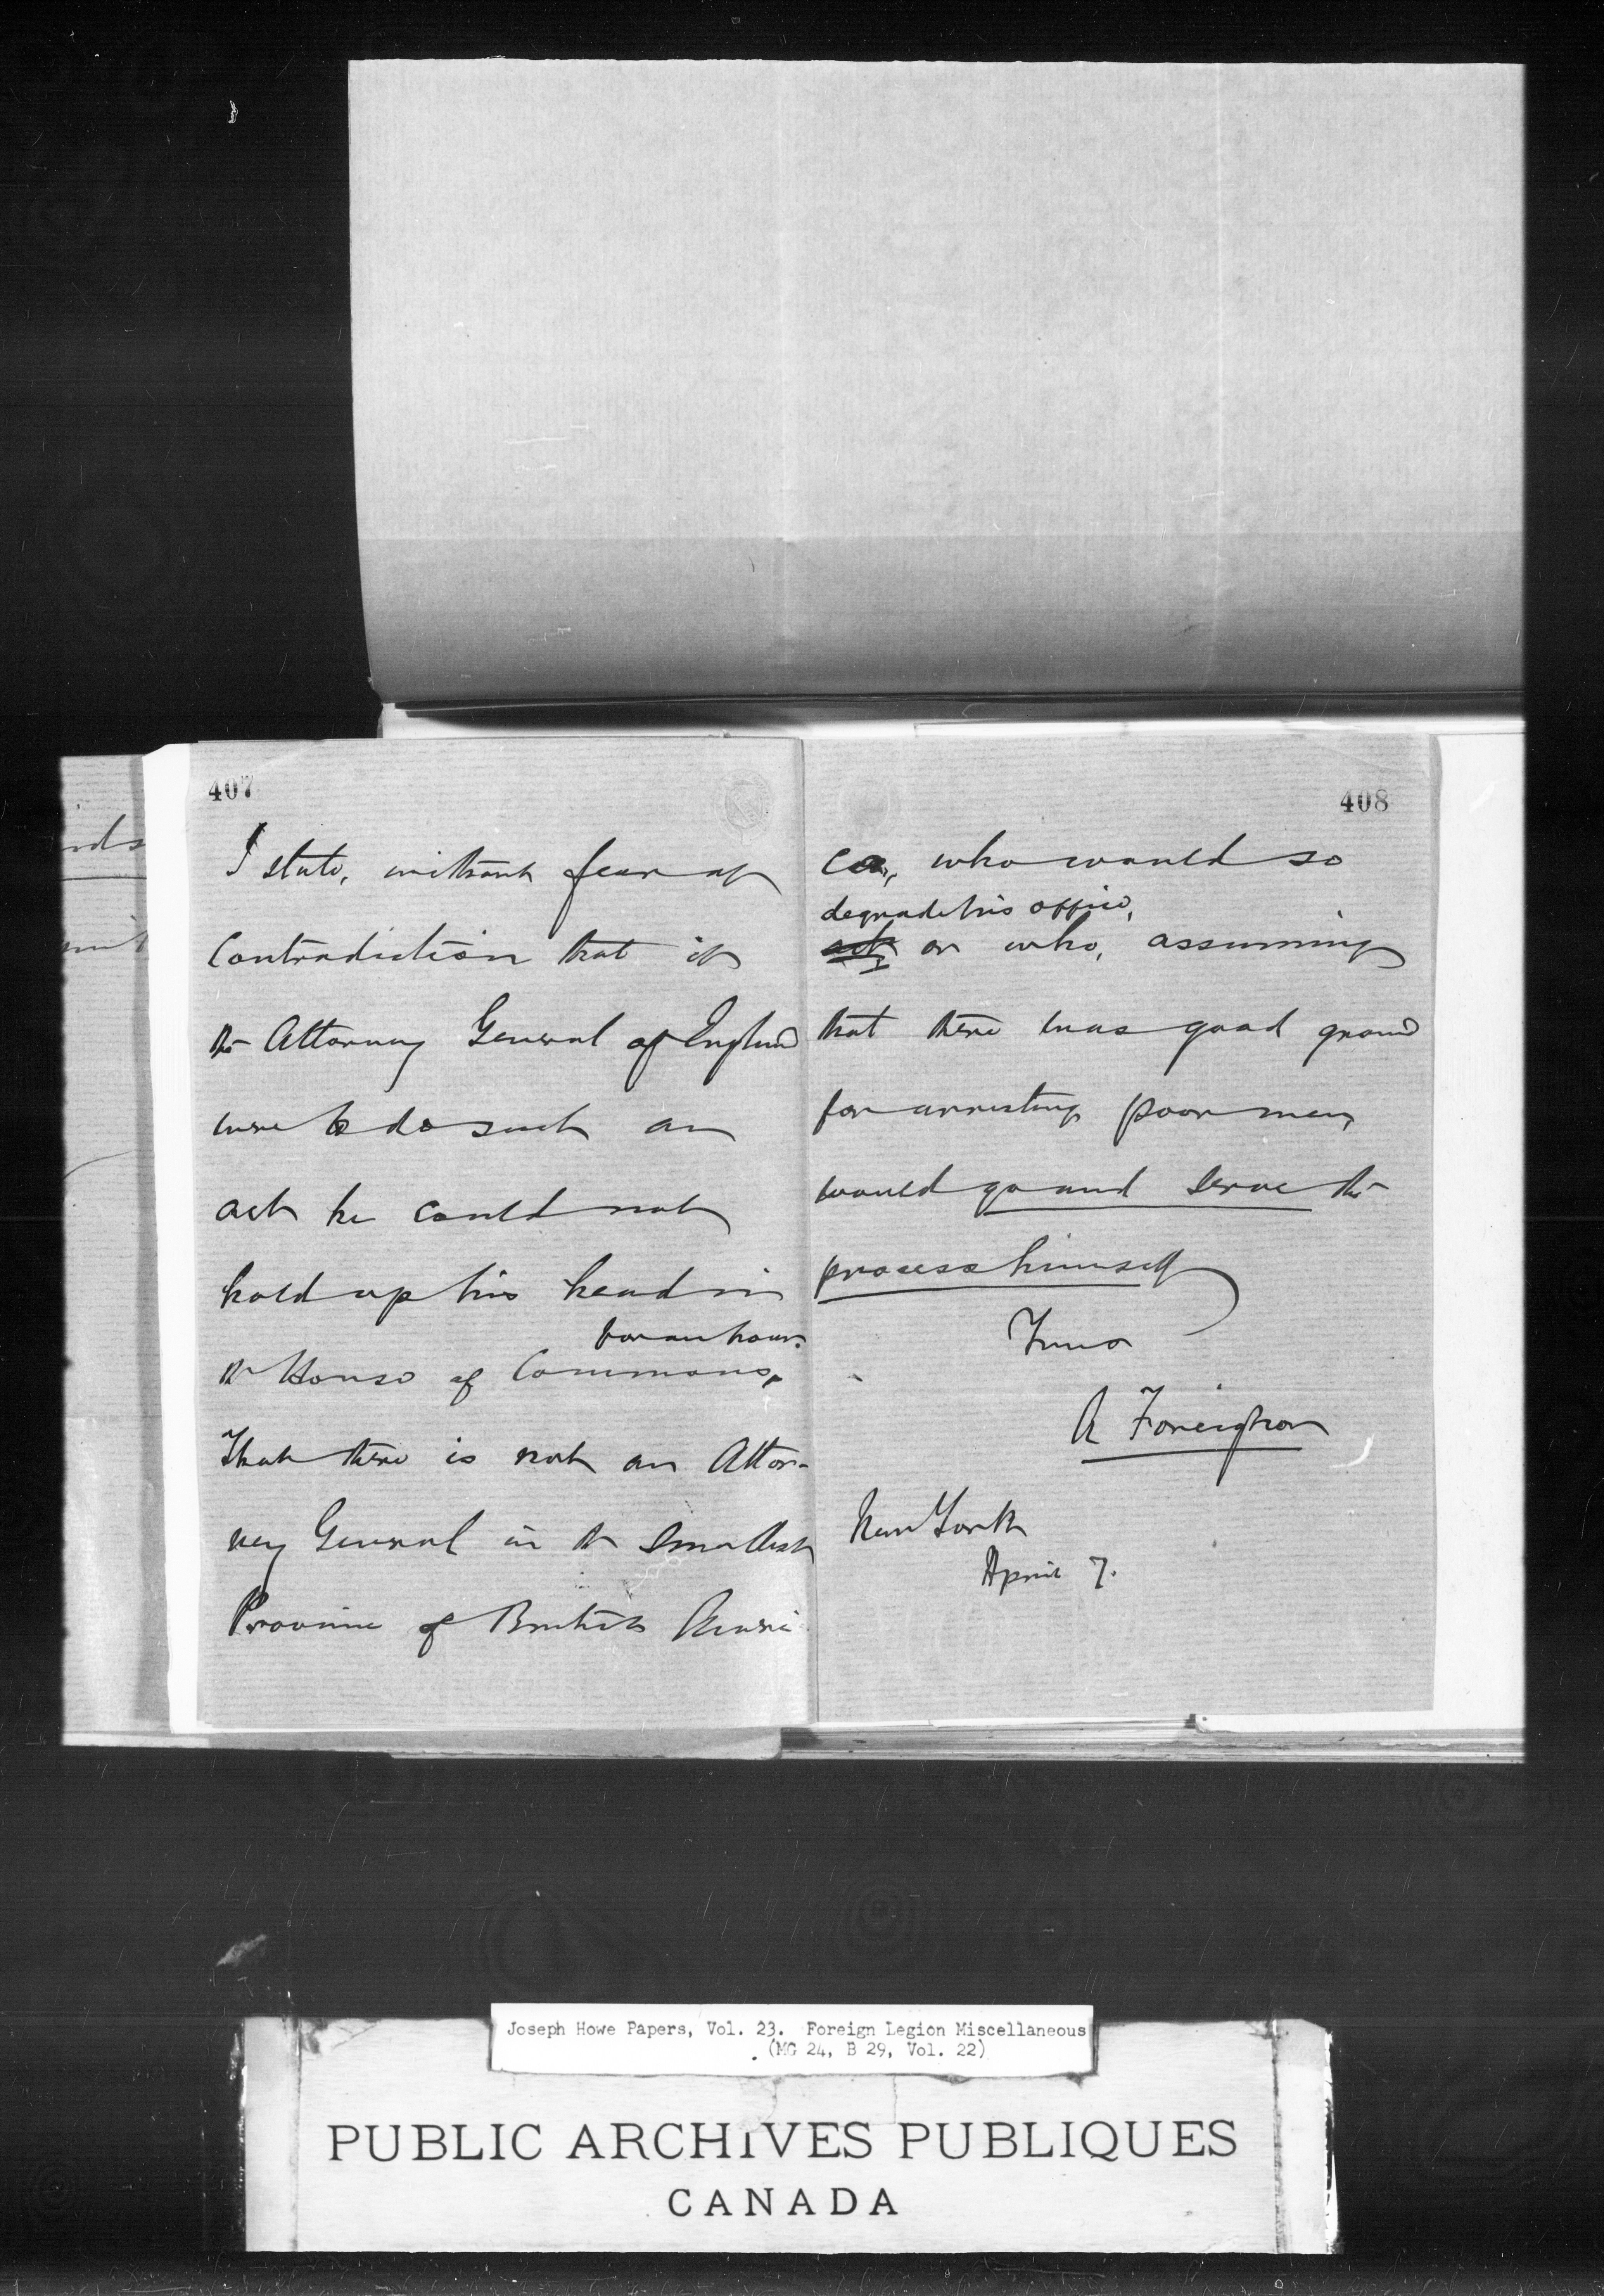 407
I state, without fear of
Contradiction that if
the Attorney General of England
were to do such an
act he could not
hold up his head in
for an hour.
the House of Commons,
That there is not an Attor-
ney General in the smallest
Province of British Ameri
408
ca, who would so
degrade his office,
act or who, assuming
that there was good ground
for arresting poor men,
would go and serve the
process himself
Yours
A Foreigner
New York
April 7.
Joseph Howe Papers, Vol. 23. Foreign Legion Miscellaneous
(MG 24, B 29, Vol. 22)
PUBLIC ARCHIVES PUBLIQUES
CANADA